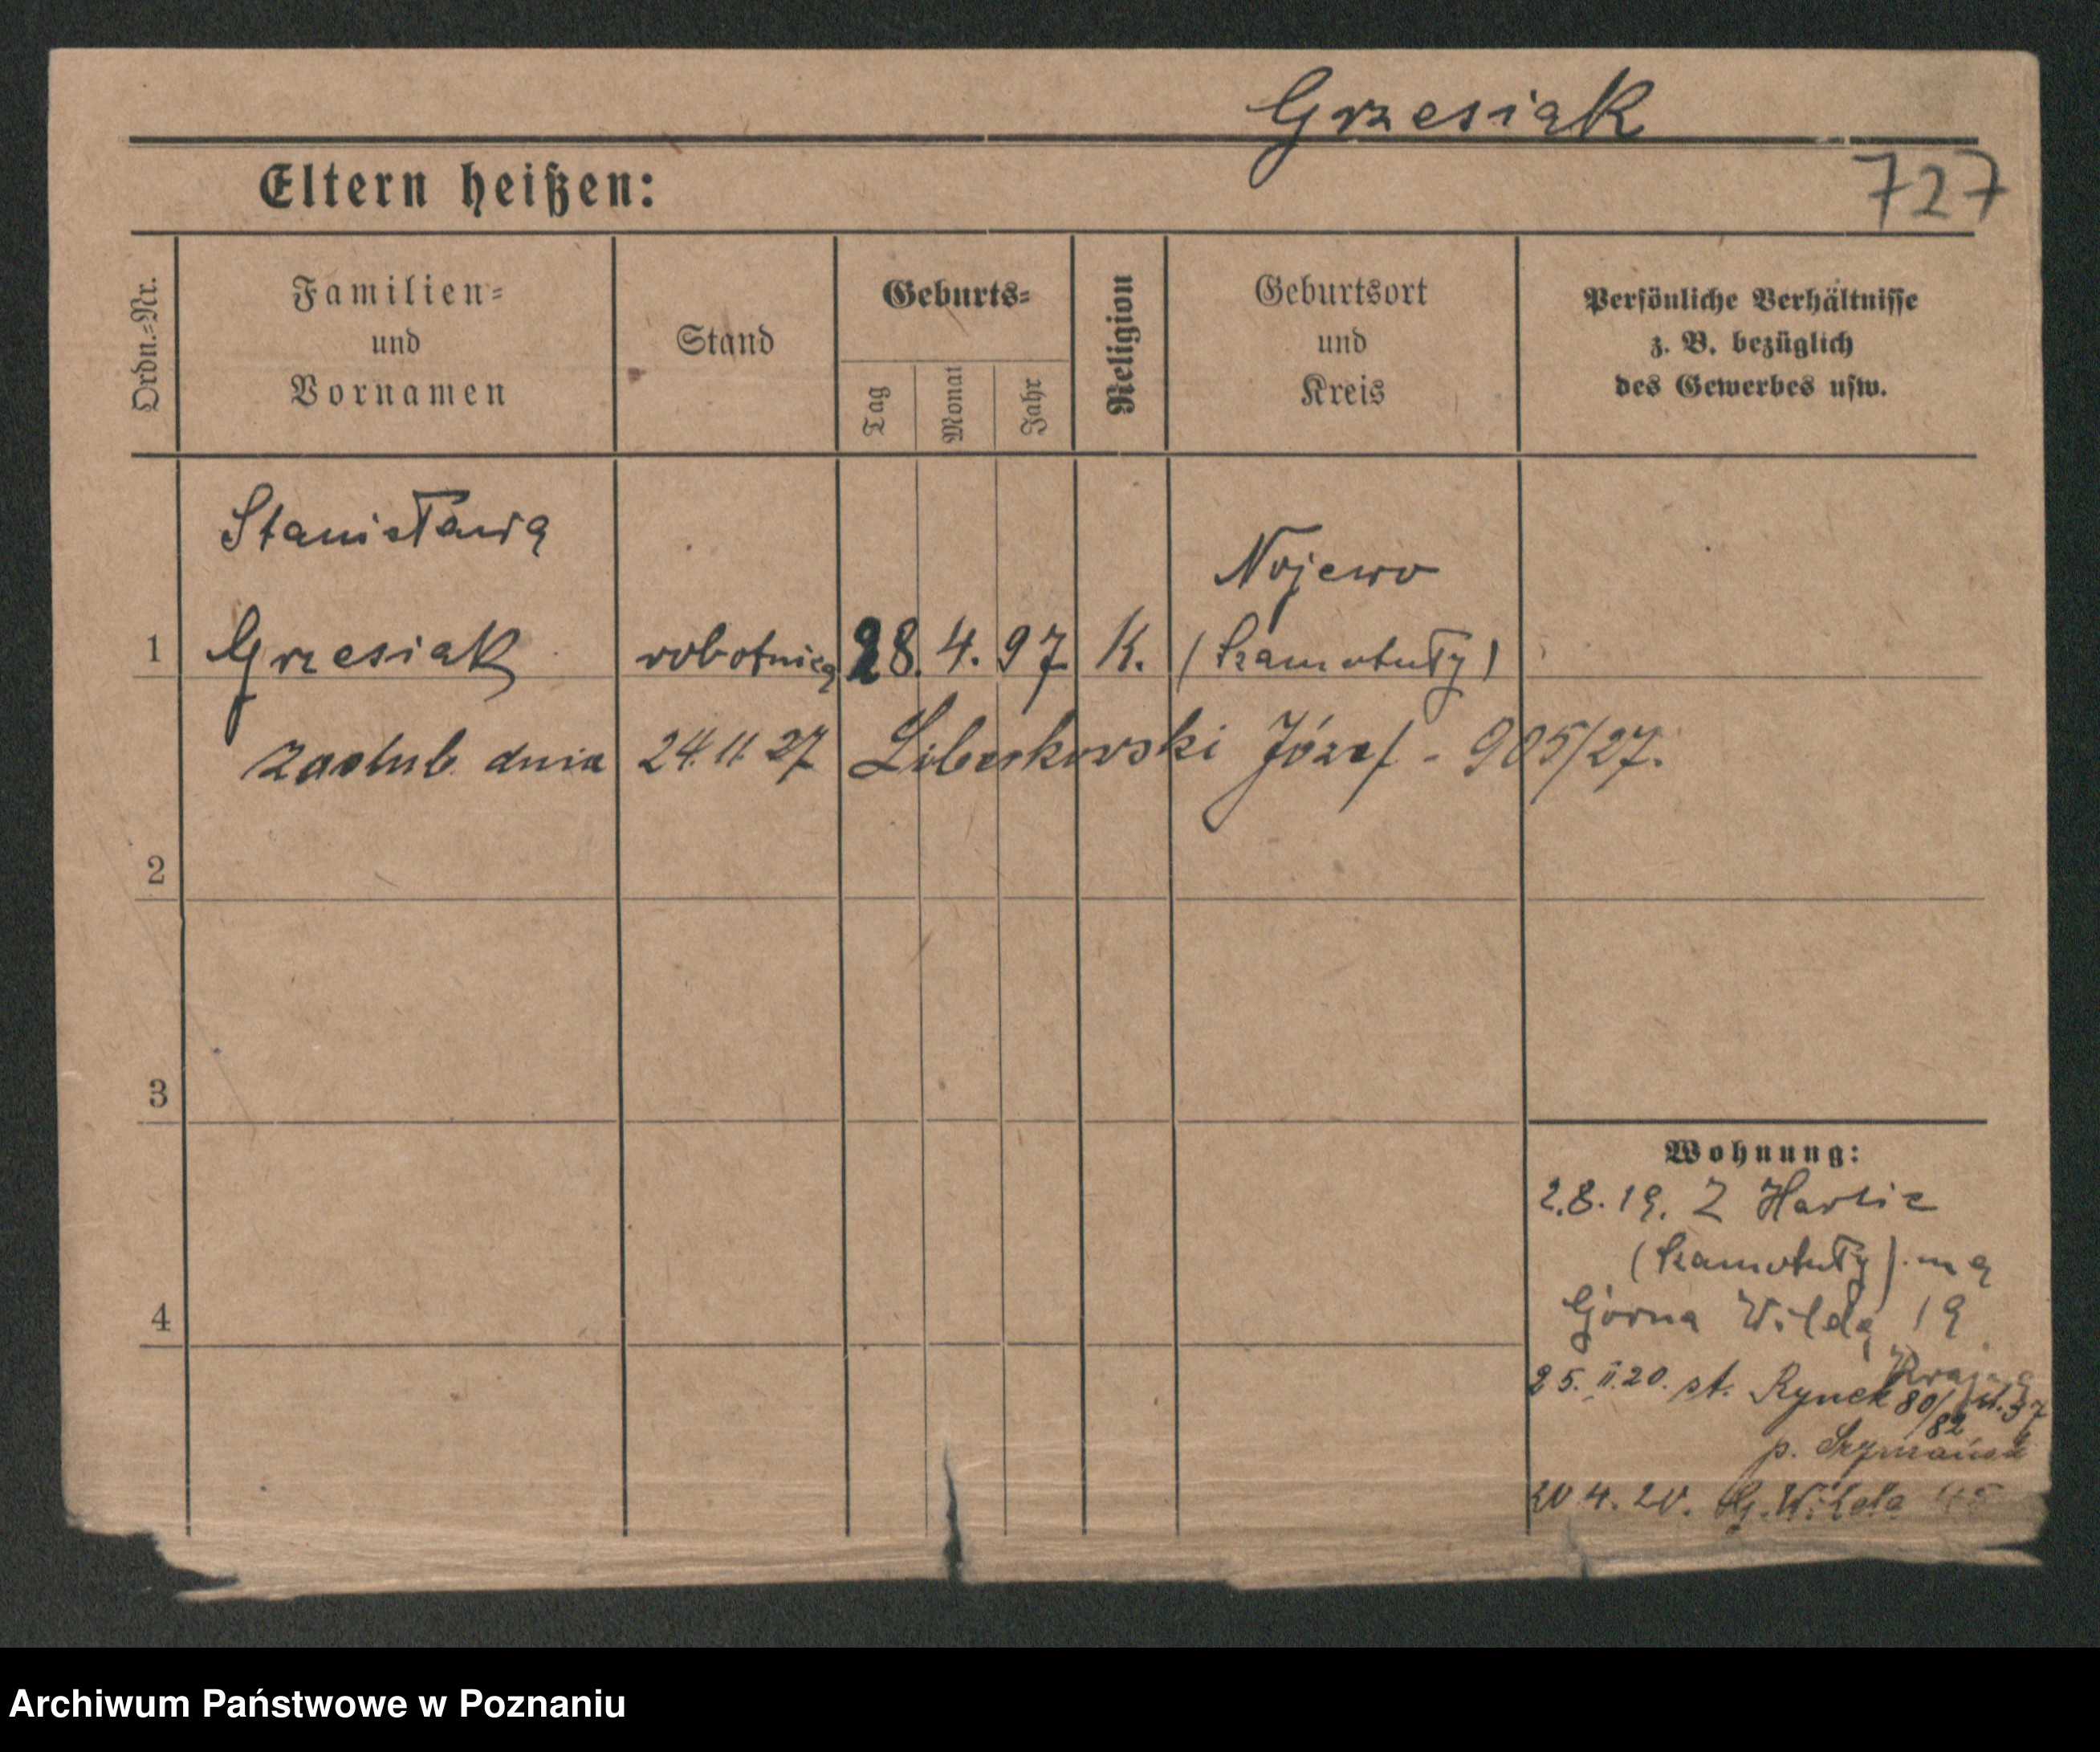 Grzesiak
Eltern heißen:
727
Ordn.-Nr.
Familien-
und
Vornamen
Stand
Geburts-
Tag
Monat
Jahr
Religion
Geburtsort
und
Kreis
Persönliche Verhältnisse
z. B. bezüglich
des Gewerbes usw.
Stanisława
Nojewo
1 Grzesiak robotnica 28. 4. 97 K. (Szamotuły)
zaślub. dnia 24.11.27 Józef - 905/27.
2
3
4
Wohnung:
2.8.19. Z
(Szamotuły) na
Górna Wilda 19
25. II. 20. st. Rynek 80/82
p.
20 4. 20. G. Wilda
Archiwum Państwowe w Poznaniu